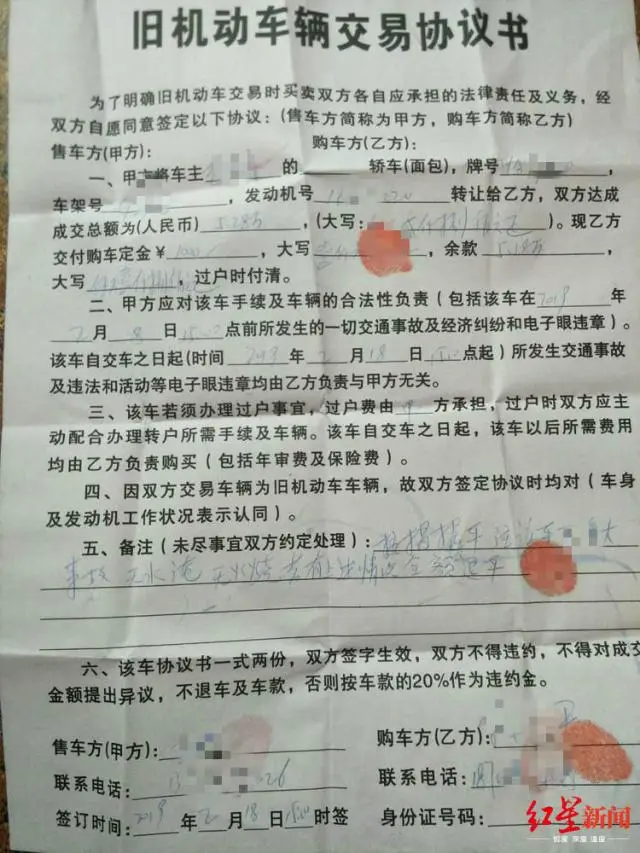 旧机动车辆交易协议书
为了明确旧机动车交易时买卖双方各自应承担的法律责任及义务，经
双方自愿同意签定以下协议：(售车方简称为甲方，购车方简称乙方)
售车方(甲方)： 购车方(乙方)：
一、甲方将车主 的 轿车(面包)，牌号 ，
车架号 ，发动机号 转让给乙方，双方达成
成交总额为(人民币) 5.28万 ，(大写： )。现乙方
交付购车定金￥ 1000 ，大写 ，余款 5.18万 ，
大写 ，过户时付清。
二、甲方应对该车手续及车辆的合法性负责(包括该车在 2019 年
2 月 18 日 15:00 点前所发生的一切交通事故及经济纠纷和电子眼违章)。
该车自交车之日起(时间 2019 年 2 月 18 日 15:00 点起)所发生交通事故
及违法和活动等电子眼违章均由乙方负责与甲方无关。
三、该车若须办理过户事宜，过户费由 甲 方承担，过户时双方应主
动配合办理转户所需手续及车辆。该车自交车之日起，该车以后所需费用
均由乙方负责购买(包括年审费及保险费)。
四、因双方交易车辆为旧机动车车辆，故双方签定协议时均对(车身
及发动机工作状况表示认同)。
五、备注(未尽事宜双方约定处理)： 该车 大
事故 无水淹 无火烧 全额退车
六、该车协议书一式两份，双方签字生效，双方不得违约，不得对成交
金额提出异议，不退车及车款，否则按车款的20%作为违约金。
售车方(甲方)： 购车方(乙方)：
联系电话： 13 26 联系电话：
签订时间： 2019 年 2 月 18 日 15:00 时签 身份证号码：
红星新闻
深度